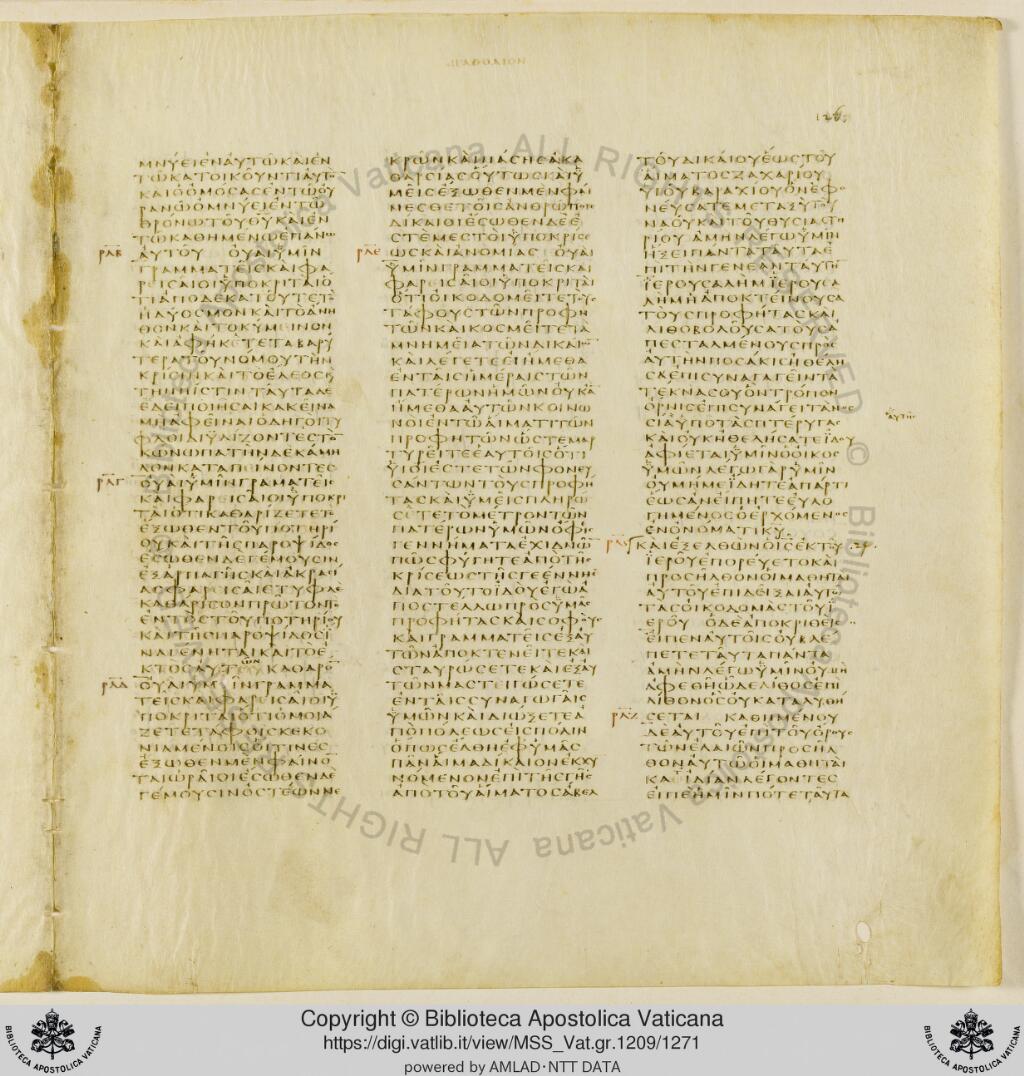 126
ΜΝΥΕΙΕΝΑΥΤΩΚΑΙΕΝ
ΤΩΚΑΤΟΙΚΟΥΝΤΙΑΥΤΟ
ΚΑΙΟΟΜΟΣΑΣΕΝΤΩΟΥ
ΡΑΝΩΟΜΝΥΕΙΕΝΤΩ
ΘΡΟΝΩΤΟΥΘΥΚΑΙΕΝ
ΤΩΚΑΘΗΜΕΝΩΕΠΑΝΩ
ΡΛΒ ΑΥΤΟΥ ΟΥΑΙΥΜΙΝ
ΓΡΑΜΜΑΤΕΙΣΚΑΙΦΑ
ΡΕΙΣΑΙΟΙΥΠΟΚΡΙΤΑΙΟ
ΤΙΑΠΟΔΕΚΑΤΟΥΤΕΤΟ
ΗΔΥΟΣΜΟΝΚΑΙΤΟΑΝΗ
ΘΟΝΚΑΙΤΟΚΥΜΕΙΝΟΝ
ΚΑΙΑΦΗΚΕΤΕΤΑΒΑΡΥ
ΤΕΡΑΤΟΥΝΟΜΟΥΤΗΝ
ΚΡΙΣΙΝΚΑΙΤΟΕΛΕΟΣΚ
ΤΗΝΠΙΣΤΙΝΤΑΥΤΑΔΕ
ΕΔΕΙΠΟΙΗΣΑΙΚΑΚΕΙΝΑ
ΜΗΑΦΕΙΝΑΙΟΔΗΓΟΙΤΥ
ΦΛΟΙΔΙΥΛΙΖΟΝΤΕΣΤΟ
ΚΩΝΩΠΑΤΗΝΔΕΚΑΜΗ
ΛΟΝΚΑΤΑΠΕΙΝΟΝΤΕΣ
ΡΛΓ ΟΥΑΙΥΜΙΝΓΡΑΜΑΤΕΙΣ
ΚΑΙΦΑΡΕΙΣΑΙΟΙΥΠΟΚΡΙ
ΤΑΙΟΤΙΚΑΘΑΡΙΖΕΤΕΤΟ
ΕΞΩΘΕΝΤΟΥΠΟΤΗΡΙ
ΟΥΚΑΙΤΗΣΠΑΡΟΨΙΔΟΣ
ΕΣΩΘΕΝΔΕΓΕΜΟΥΣΙΝ
ΕΞΑΡΠΑΓΗΣΚΑΙΑΚΡΑΣΙ
ΑΣΦΑΡΕΙΣΑΙΕΤΥΦΛΕ
ΚΑΘΑΡΙΣΟΝΠΡΩΤΟΝΤΟ
ΕΝΤΟΣΤΟΥΠΟΤΗΡΙΟΥ
ΚΑΙΤΗΣΠΑΡΟΨΙΔΟΣΙ
ΝΑΓΕΝΗΤΑΙΚΑΙΤΟΕ
ΚΤΟΣΑΥΤΩΝΚΑΘΑΡΟ
ΡΛΔ ΟΥΑΙΥΜΙΝΓΡΑΜΜΑ
ΤΕΙΣΚΑΙΦΑΡΕΙΣΑΙΟΙΥ
ΠΟΚΡΙΤΑΙΟΤΙΟΜΟΙΑ
ΖΕΤΕΤΑΦΟΙΣΚΕΚΟ
ΝΙΑΜΕΝΟΙΣΟΙΤΙΝΕΣ
ΕΞΩΘΕΝΜΕΝΦΑΙΝΟ
ΤΑΙΩΡΑΙΟΙΕΣΩΘΕΝΔΕ
ΓΕΜΟΥΣΙΝΟΣΤΕΩΝΝΕ
ΚΡΩΝΚΑΙΠΑΣΗΣΑΚΑ
ΘΑΡΣΙΑΣΟΥΤΩΣΚΑΙΥ
ΜΕΙΣΕΞΩΘΕΝΜΕΝΦΑΙ
ΝΕΣΘΕΤΟΙΣΑΝΘΡΩΠΟΙΣ
ΔΙΚΑΙΟΙΕΣΩΘΕΝΔΕΕ
ΣΤΕΜΕΣΤΟΙΥΠΟΚΡΙΣΕ
ΡΛΕ ΩΣΚΑΙΑΝΟΜΙΑΣ ΟΥΑΙ
ΥΜΙΝΓΡΑΜΜΑΤΕΙΣΚΑΙ
ΦΑΡΕΙΣΑΙΟΙΥΠΟΚΡΙΤΑΙ
ΟΤΙΟΙΚΟΔΟΜΕΙΤΕΤΟΥΣ
ΤΑΦΟΥΣΤΩΝΠΡΟΦΗ
ΤΩΝΚΑΙΚΟΣΜΕΙΤΕΤΑ
ΜΝΗΜΕΙΑΤΩΝΔΙΚΑΙΩ
ΚΑΙΛΕΓΕΤΕΕΙΗΜΕΘΑ
ΕΝΤΑΙΣΗΜΕΡΑΙΣΤΩΝ
ΠΑΤΕΡΩΝΗΜΩΝΟΥΚΑ
ΗΜΕΘΑΑΥΤΩΝΚΟΙΝΩ
ΝΟΙΕΝΤΩΑΙΜΑΤΙΤΩΝ
ΠΡΟΦΗΤΩΝΩΣΤΕΜΑΡ
ΤΥΡΕΙΤΕΕΑΥΤΟΙΣΟΤΙ
ΥΙΟΙΕΣΤΕΤΩΝΦΟΝΕΥ
ΣΑΝΤΩΝΤΟΥΣΠΡΟΦΗ
ΤΑΣΚΑΙΥΜΕΙΣΠΛΗΡΩ
ΣΕΤΕΤΟΜΕΤΡΟΝΤΩΝ
ΠΑΤΕΡΩΝΥΜΩΝΟΦΕΙΣ
ΓΕΝΝΗΜΑΤΑΕΧΙΔΝΩ
ΠΩΣΦΥΓΗΤΕΑΠΟΤΗΣ
ΚΡΙΣΕΩΣΤΗΣΓΕΕΝΝΗΣ
ΔΙΑΤΟΥΤΟΙΔΟΥΕΓΩΑ
ΠΟΣΤΕΛΛΩΠΡΟΣΥΜΑΣ
ΠΡΟΦΗΤΑΣΚΑΙΣΟΦΟΥΣ
ΚΑΙΓΡΑΜΜΑΤΕΙΣΕΞΑΥ
ΤΩΝΑΠΟΚΤΕΝΕΙΤΕΚΑΙ
ΣΤΑΥΡΩΣΕΤΕΚΑΙΕΞΑΥ
ΤΩΝΜΑΣΤΕΙΓΩΣΕΤΕ
ΕΝΤΑΙΣΣΥΝΑΓΩΓΑΙΣ
ΥΜΩΝΚΑΙΔΙΩΞΕΤΕΑ
ΠΟΠΟΛΕΩΣΕΙΣΠΟΛΙΝ
ΟΠΩΣΕΛΘΗΕΦΥΜΑΣ
ΠΑΝΑΙΜΑΔΙΚΑΙΟΝΕΚΧΥ
ΝΟΜΕΝΟΝΕΠΙΤΗΣΓΗΣ
ΑΠΟΤΟΥΑΙΜΑΤΟΣΑΒΕΛ
ΤΟΥΔΙΚΑΙΟΥΕΩΣΤΟΥ
ΑΙΜΑΤΟΣΖΑΧΑΡΙΟΥ
ΥΙΟΥΒΑΡΑΧΙΟΥΟΝΕΦΟ
ΝΕΥΣΑΤΕΜΕΤΑΞΥΤΟΥ
ΝΑΟΥΚΑΙΤΟΥΘΥΣΙΑΣΤΗ
ΡΙΟΥ ΑΜΗΝΛΕΓΩΥΜΙΝ
ΗΞΕΙΠΑΝΤΑΤΑΥΤΑΕ
ΠΙΤΗΝΓΕΝΕΑΝΤΑΥΤΗ
ΙΕΡΟΥΣΑΛΗΜΙΕΡΟΥΣΑ
ΛΗΜΗΑΠΟΚΤΕΙΝΟΥΣΑ
ΤΟΥΣΠΡΟΦΗΤΑΣΚΑΙ
ΛΙΘΟΒΟΛΟΥΣΑΤΟΥΣΑ
ΠΕΣΤΑΛΜΕΝΟΥΣΠΡΟΣ
ΑΥΤΗΝΠΟΣΑΚΙΣΗΘΕΛΗ
ΣΑΕΠΙΣΥΝΑΓΑΓΕΙΝΤΑ
ΤΕΚΝΑΣΟΥΟΝΤΡΟΠΟΝ
ΟΡΝΙΣΕΠΙΣΥΝΑΓΕΙΤΑΝΟΣ
ΣΙΑΥΠΟΤΑΣΠΤΕΡΥΓΑΣ ΑΥΤΗΣ
ΚΑΙΟΥΚΗΘΕΛΗΣΑΤΕΙΔΟΥ
ΑΦΙΕΤΑΙΥΜΙΝΟΟΙΚΟΣ
ΥΜΩΝΛΕΓΩΓΑΡΥΜΙΝ
ΟΥΜΗΜΕΙΔΗΤΕΑΠΑΡΤΙ
ΕΩΣΑΝΕΙΠΗΤΕΕΥΛΟ
ΓΗΜΕΝΟΣΟΕΡΧΟΜΕΝΟΣ
ΕΝΟΝΟΜΑΤΙΚΥ
ΡΛϚ ΚΑΙΕΞΕΛΘΩΝΟΙΣΕΚΤΟΥ 24.
ΙΕΡΟΥΕΠΟΡΕΥΕΤΟΚΑΙ
ΠΡΟΣΗΛΘΟΝΟΙΜΑΘΗΤΑΙ
ΑΥΤΟΥΕΠΙΔΕΙΞΑΙΑΥΤΩ
ΤΑΣΟΙΚΟΔΟΜΑΣΤΟΥΙ
ΕΡΟΥ ΟΔΕΑΠΟΚΡΙΘΕΙΣ
ΕΙΠΕΝΑΥΤΟΙΣΟΥΒΛΕ
ΠΕΤΕΤΑΥΤΑΠΑΝΤΑ
ΑΜΗΝΛΕΓΩΥΜΙΝΟΥΜΗ
ΑΦΕΘΗΩΔΕΛΙΘΟΣΕΠΙ
ΛΙΘΟΝΟΣΟΥΚΑΤΑΛΥΘΗ
ΡΛΖ ΣΕΤΑΙ ΚΑΘΗΜΕΝΟΥ
ΔΕΑΥΤΟΥΕΠΙΤΟΥΟΡΟΥΣ
ΤΩΝΕΛΑΙΩΝΠΡΟΣΗΛ
ΘΟΝΑΥΤΩΟΙΜΑΘΗΤΑΙ
ΚΑΤΙΔΙΑΝΛΕΓΟΝΤΕΣ
ΕΙΠΕΗΜΙΝΠΟΤΕΤΑΥΤΑ
Copyright © Biblioteca Apostolica Vaticana
https://digi.vatlib.it/view/MSS_Vat.gr.1209/1271
powered by AMLAD·NTT DATA
BIBLIOTECA APOSTOLICA VATICANA
BIBLIOTECA APOSTOLICA VATICANA